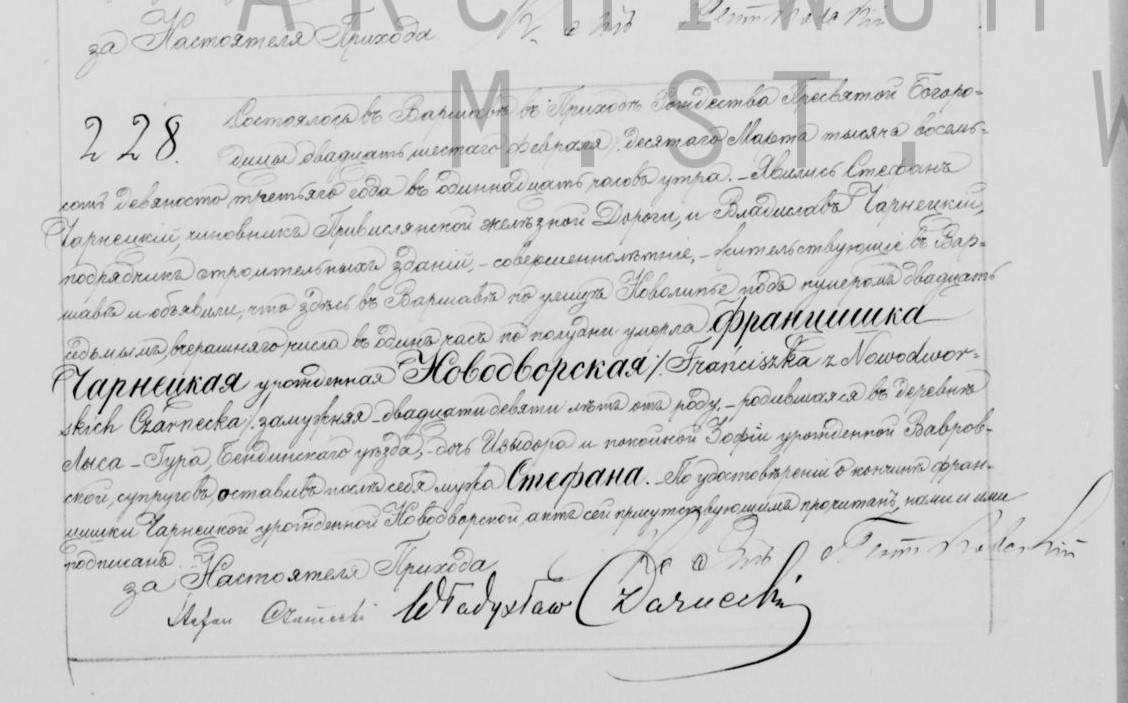 ARCHIWUM
за Настоятеля Прихода
M. ST. W
228. Состоялось въ Варшавѣ въ Приходѣ Рождества Пресвятой Богоро-
дицы двадцать шестаго февраля /: десятаго Марта тысяча восемь-
сотъ девяносто третьяго года въ одиннадцать часовъ утра. - Явились Стефанъ
Чарнецкій, чиновникъ Привислянской желѣзной Дороги, и Владиславъ Чарнецкій,
подрядчикъ строительныхъ зданій, - совершеннолѣтніе, - жительствующіе въ Вар-
шавѣ и объявили, что здѣсь въ Варшавѣ по улицѣ Новолипье подъ нумеромъ двадцать
седьмымъ, вчерашняго числа въ одинъ часъ по полудни умерла Францишка
Чарнецкая урожденная Новодворская /: Franciszka z Nowodwor-
skich Czarnecka /: замужняя - двадцати девяти лѣтъ отъ роду, - родившаяся въ деревнѣ
Лыса - Гура, Бендинскаго уѣзда, - дочь Изыдора и покойной Зофіи урожденной Вавров-
ской, супруговъ, оставивъ послѣ себя мужа Стефана. - По удостовѣреніи о кончинѣ Фран-
цишки Чарнецкой урожденной Новодворской, актъ сей присутствующимъ прочитанъ, нами и ими
подписанъ.
за Настоятеля Прихода
Stefan Czarnecki Władysław Czarnecki